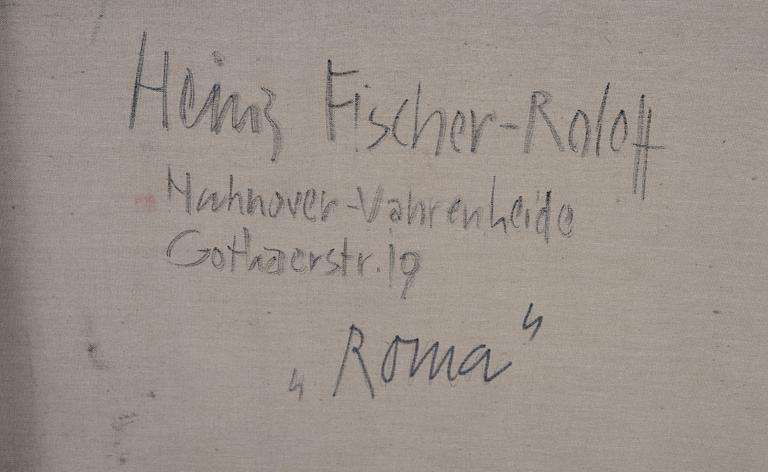 Heinz Fischer-Roloff
Hannover-Vahrenheide
Gothaerstr. 19
„Roma“